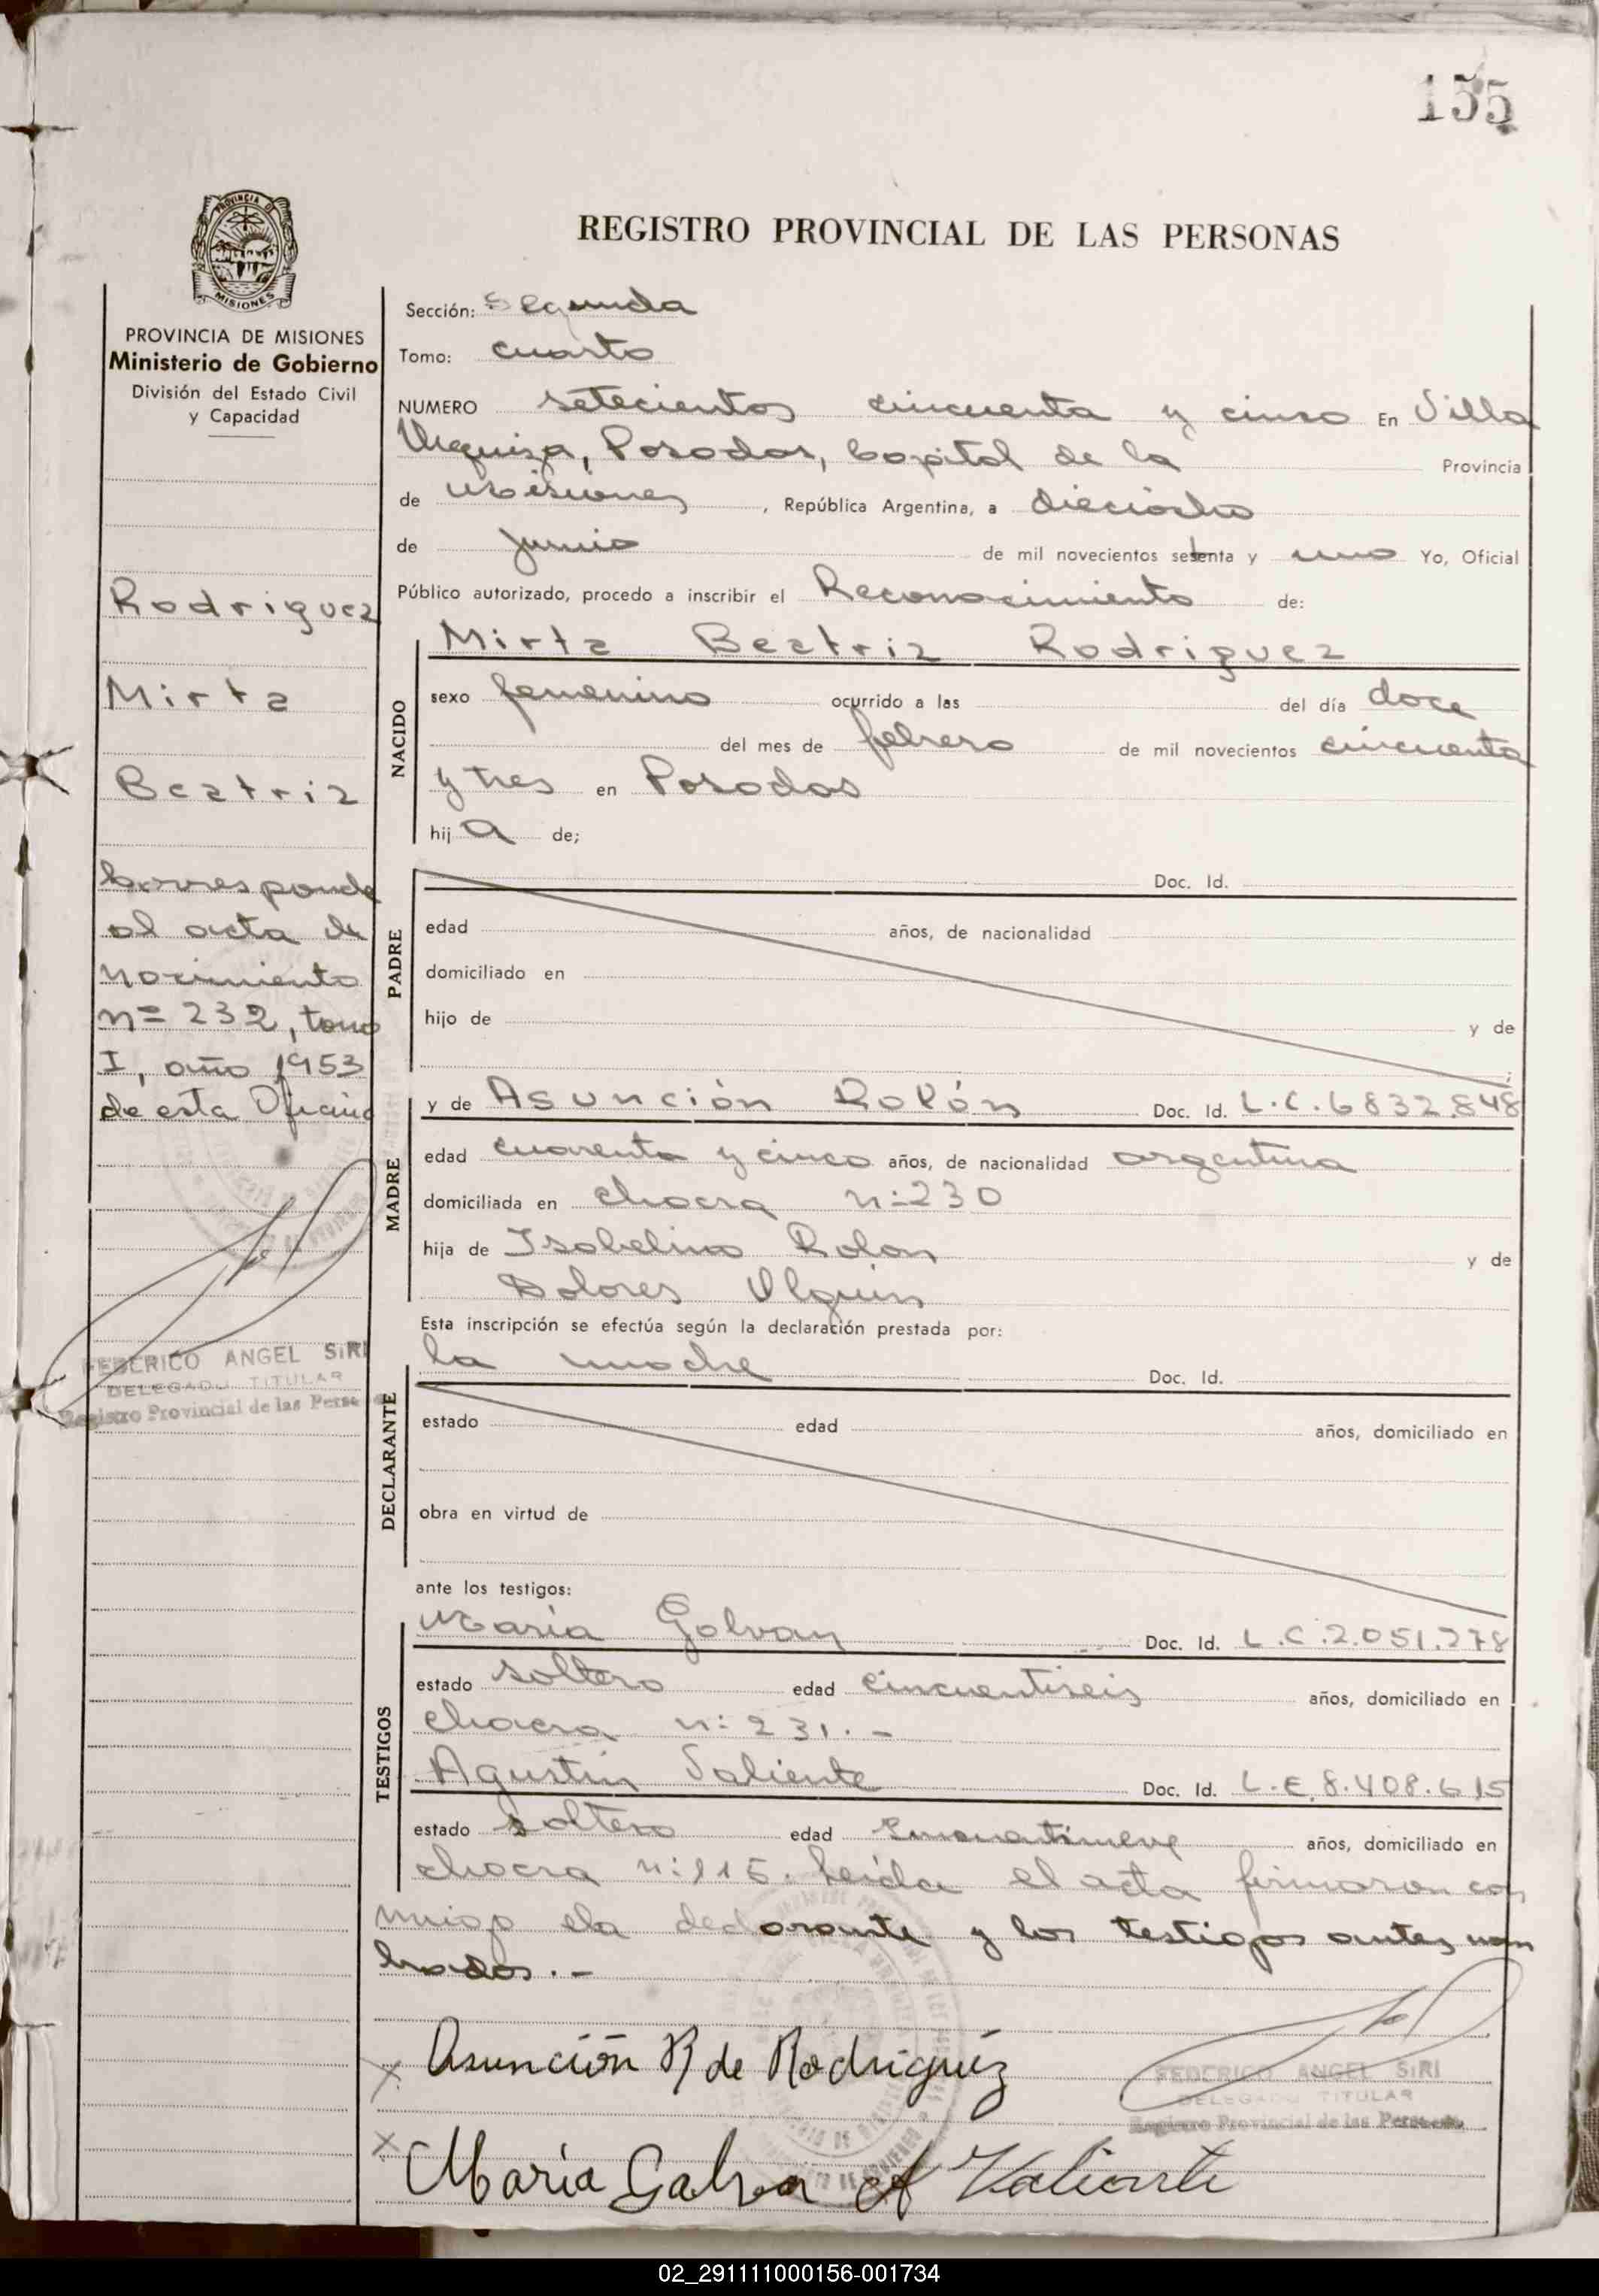 155
REGISTRO PROVINCIAL DE LAS PERSONAS
PROVINCIA DE MISIONES
PROVINCIA DE MISIONES
Ministerio de Gobierno
División del Estado Civil
y Capacidad
Rodriguez
Mirta
Beatriz
Corresponde
al acta de
nacimiento
nº 232, tomo
I, año 1953
de esta Oficina
FEDERICO ANGEL SIRI
DELEGADO TITULAR
Registro Provincial de las Perso
Sección: Segunda
Tomo: cuarto
NUMERO setecientos cincuenta y cinco En Villa
Urquiza, Posadas, Capital de la Provincia
de Misiones, República Argentina, a dieciocho
de junio de mil novecientos setenta y uno Yo, Oficial
Público autorizado, procedo a inscribir el Reconocimiento de:
NACIDO
Mirta Beatriz Rodriguez
sexo femenino ocurrido a las del día doce
del mes de febrero de mil novecientos cincuenta
y tres en Posadas
hija de;
PADRE
Doc. Id.
edad años, de nacionalidad
domiciliado en
hijo de y de
MADRE
y de Asunción Rolón Doc. Id. L.C. 6832.848
edad cuarenta y cinco años, de nacionalidad argentina
domiciliada en chacra n: 230
hija de Isabelino Rolon y de
Dolores Olguin
Esta inscripción se efectúa según la declaración prestada por:
DECLARANTE
la madre Doc. Id.
estado edad años, domiciliado en
obra en virtud de
ante los testigos:
TESTIGOS
Maria Galvan Doc. Id. L.C. 2.051.278
estado soltera edad cincuentiseis años, domiciliado en
chacra n: 231.-
Agustin Valiente Doc. Id. L.E. 8.408.615
estado soltero edad años, domiciliado en
chacra n: 115. Leida el acta firmaron con
migo la declarante y los testigos antes nom
brados.-
Asunción R de Rodriguéz
FEDERICO ANGEL SIRI
DELEGADO TITULAR
Registro Provincial de las Personas
María Galvan A Valiente
02_291111000156-001734